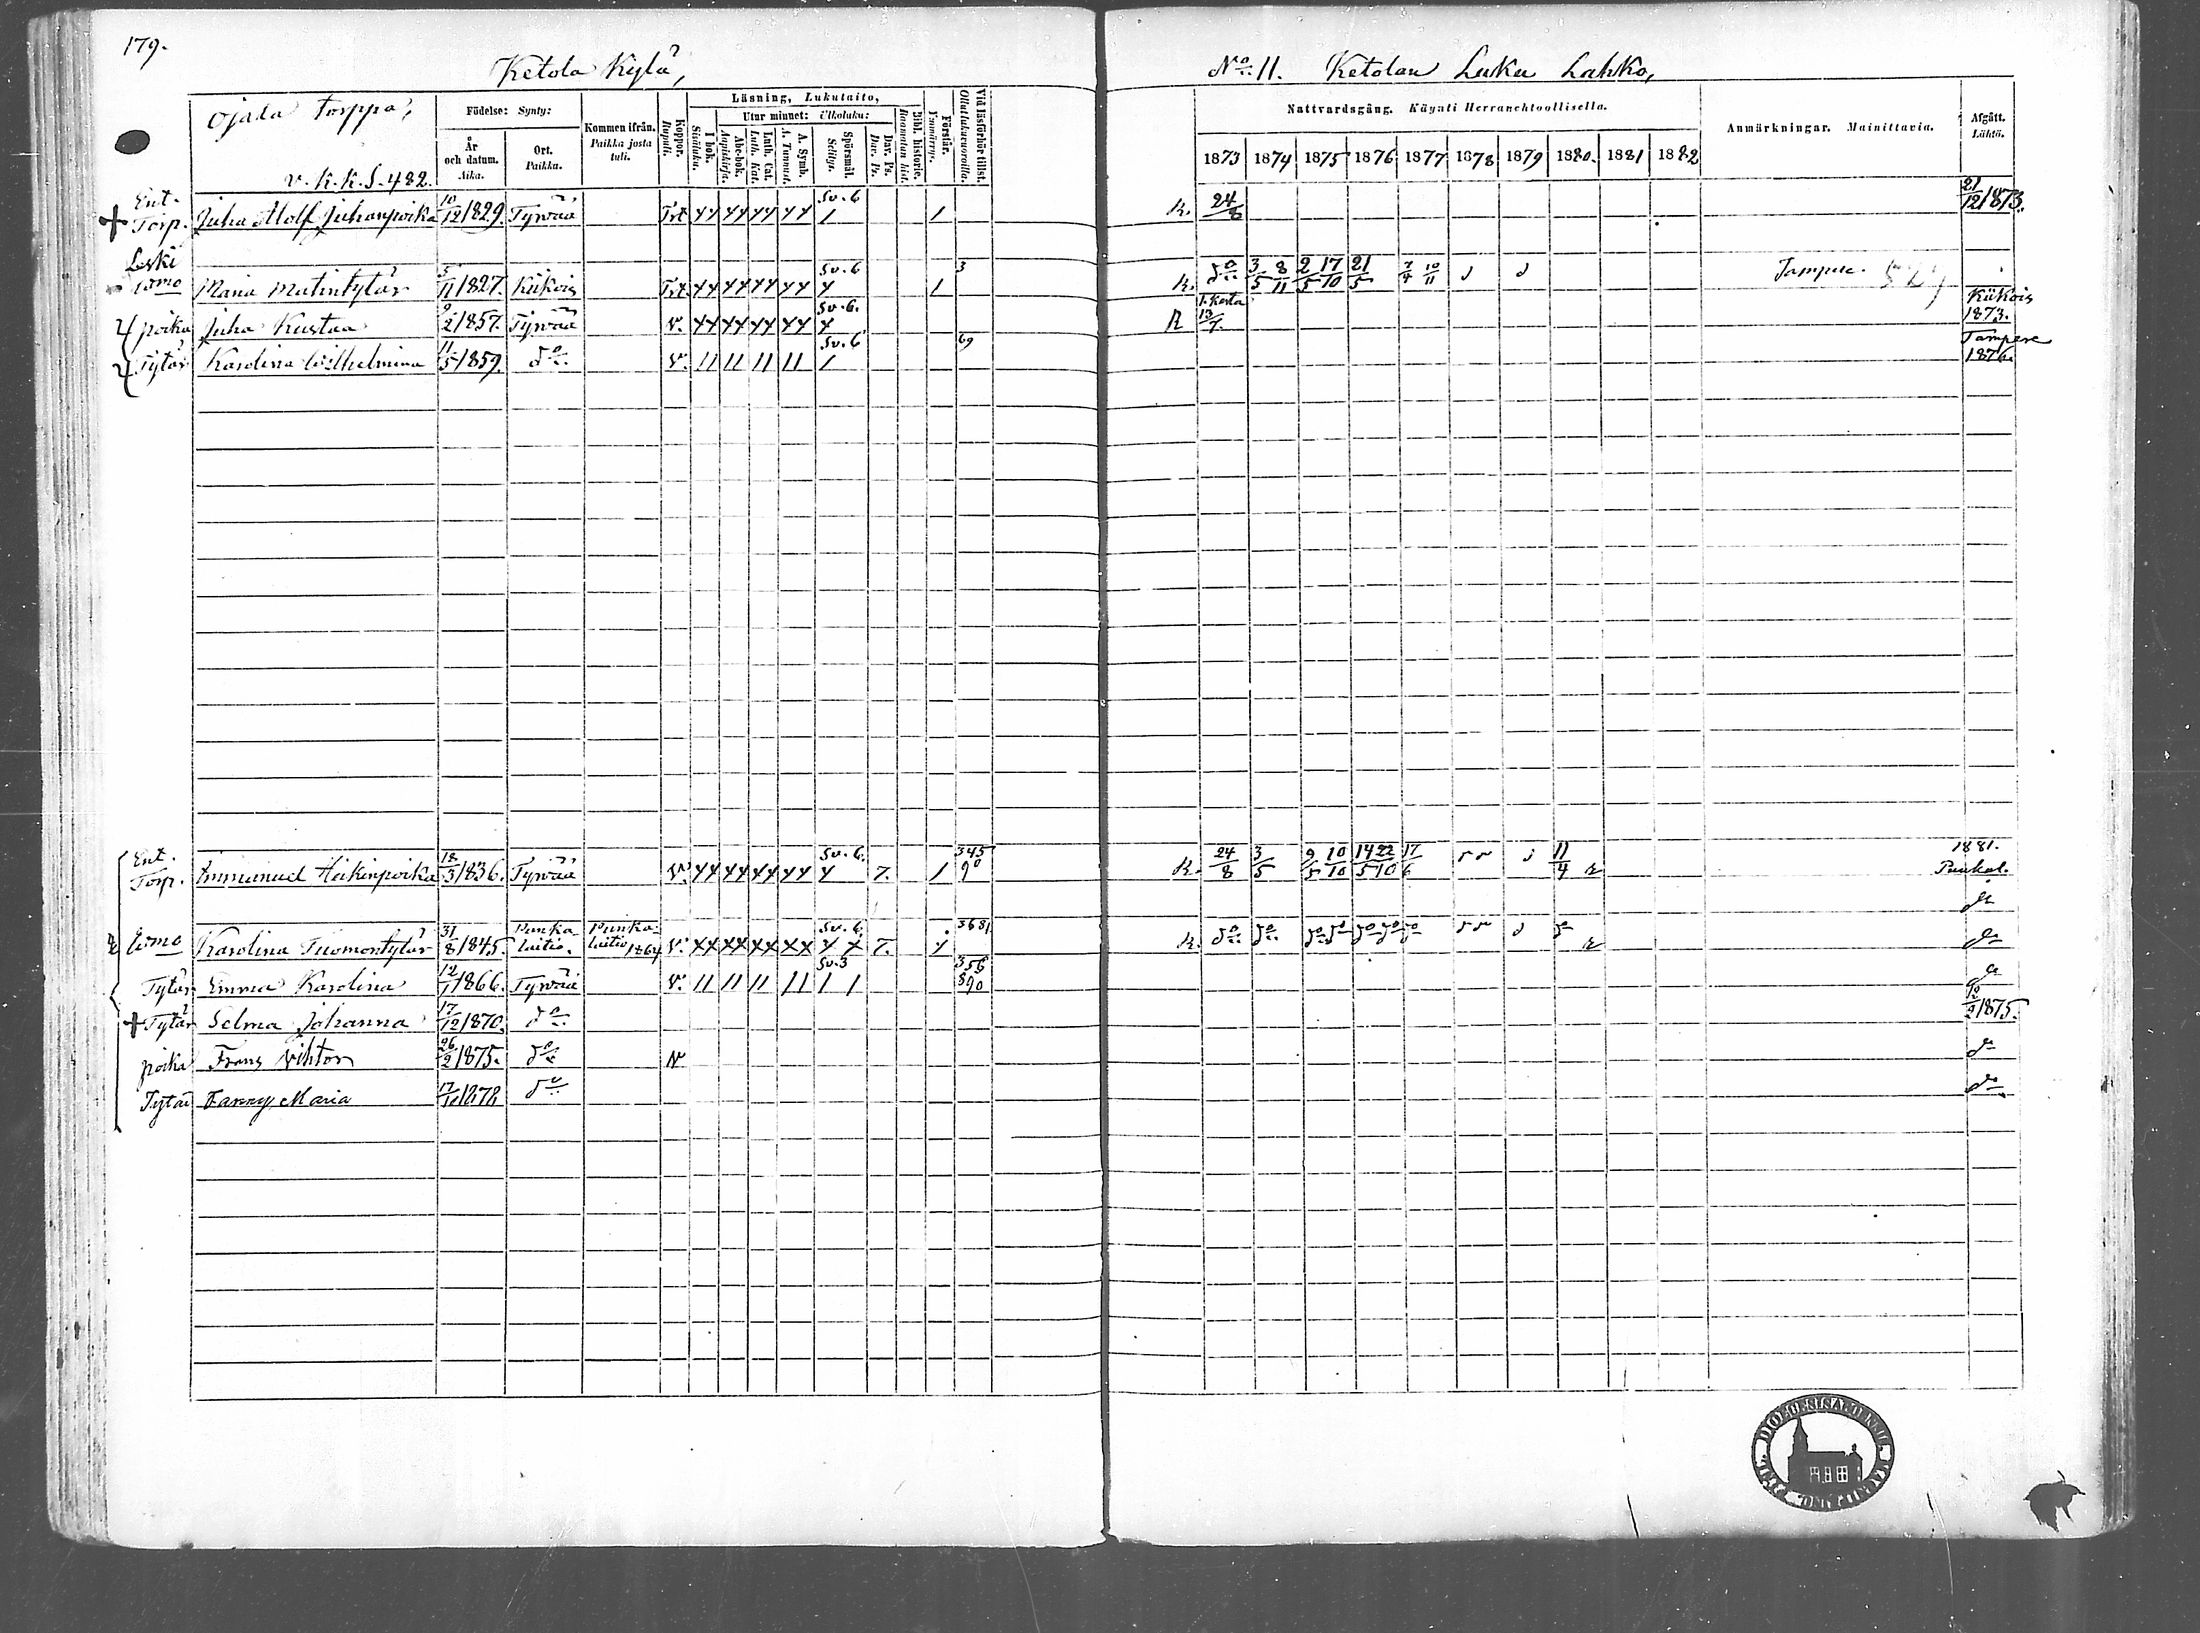 179.
Ketola Kylä,
No 11. Ketolan Luku Lahko,
Ojala Torppa,
v. K. K. S. 482.
Födelse: Synty:
År och datum. Aika.
Ort. Paikka.
Kommen ifrån. Paikka josta tuli.
Koppor. Rupuli.
Läsning, Lukutaito,
I bok. Sisäluku.
Utur minnet: Ulkoluku:
Abc-bok. Aapiskirja.
Luth. Cat. Luth. Kat.
A. Symb. A. Tunnust.
Spörsmål. Selitys.
Dav. Ps. Dav. Ps.
Bibl. historie. Raamatun hist.
Förstår. Ymmärrys.
Vid läsförhör tillst. Ollut lukuvuorolla.
Nattvardsgång. Käynti Herranehtoollisella.
1873 1874 1875 1876 1877 1878 1879 1880. 1881 1882
Anmärkningar. Mainittavia.
Afgått. Lähtö.
Ent. Torp. Juha Adolf Juhanpoika 10/12 1829. Tyrvää Trt. Sv. 6 1 1 R. 24/8 21/12 1873.
Leski
wmo Maria Matintytär 5/11 1827. Kiikois Trt. Sv. 6 1 3 R. do 3/5 8/11 2/5 17/10 21/5 7/4 10/11 Tampere.
poika Juha Kustaa 9/2 1857. Tyrvää v. Sv. 6. R 13/7 Kiikois 1873.
Tytär Karolina Wilhelmina 11/5 1859. do v. 11 11 11 11 Sv. 6 1 69 Tampere 1876.
Ent. Torp. Emmanuel Heikinpoika 18/3 1836. Tyrvää v. Sv. 6. 7. 1 345 90 R. 24/8 3/5 9/5 10/10 14/5 22/10 17/6 11/4 1881. Punkal.
wmo Karolina Tuomontytär 31/8 1845. Punkalaitio. Punkalaitio 1864 v. Sv. 6. 7. 3681 R. do do do do do do do do
Tytär Emma Karolina 12/1 1866. Tyrvää v. 11 11 11 11 Sv. 3 1 1 356 890
Tytär Selma Johanna 17/12 1870. do 12/2 1875.
poika Frans Viktor 26/2 1875. do v do
Tytär Fanny Maria 17/10 1878 do do